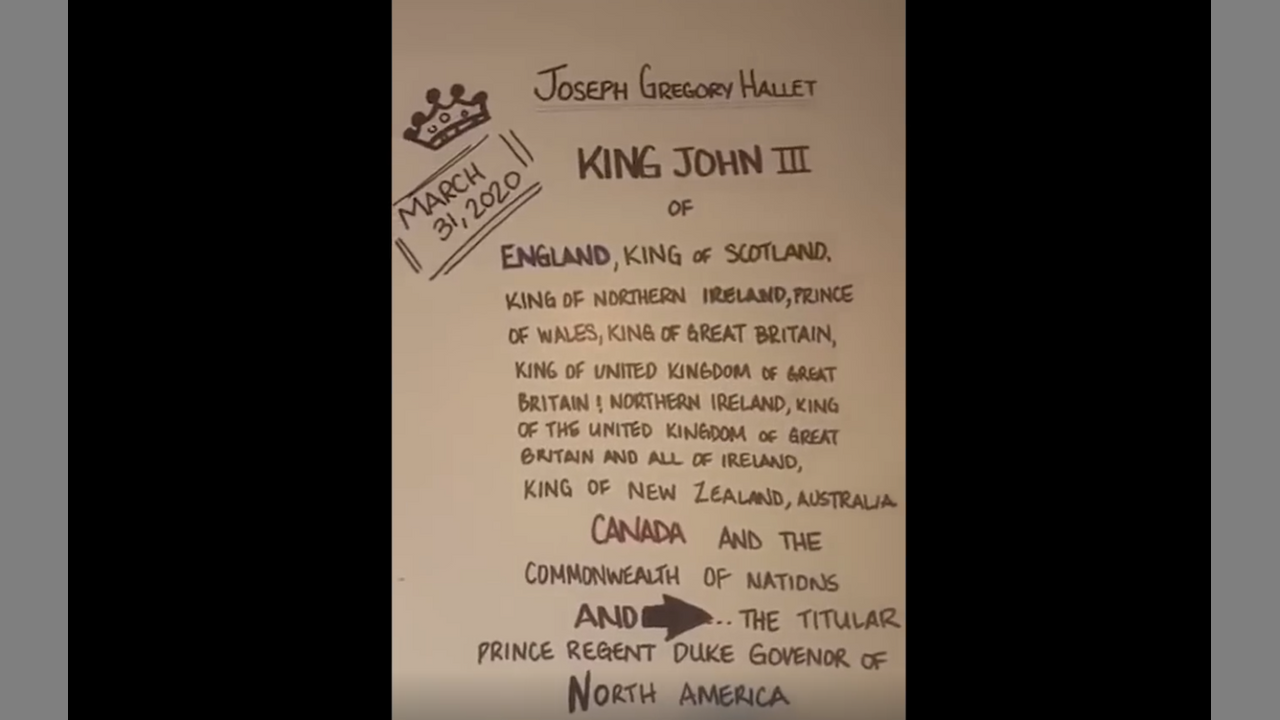 JOSEPH GREGORY HALLET
MARCH
31, 2020
KING JOHN III
OF
ENGLAND, KING OF SCOTLAND.
KING OF NORTHERN IRELAND, PRINCE
OF WALES, KING OF GREAT BRITAIN,
KING OF UNITED KINGDOM OF GREAT
BRITAIN & NORTHERN IRELAND, KING
OF THE UNITED KINGDOM OF GREAT
BRITAIN AND ALL OF IRELAND,
KING OF NEW ZEALAND, AUSTRALIA
CANADA AND THE
COMMONWEALTH OF NATIONS
AND ... THE TITULAR
PRINCE REGENT DUKE GOVENOR OF
NORTH AMERICA